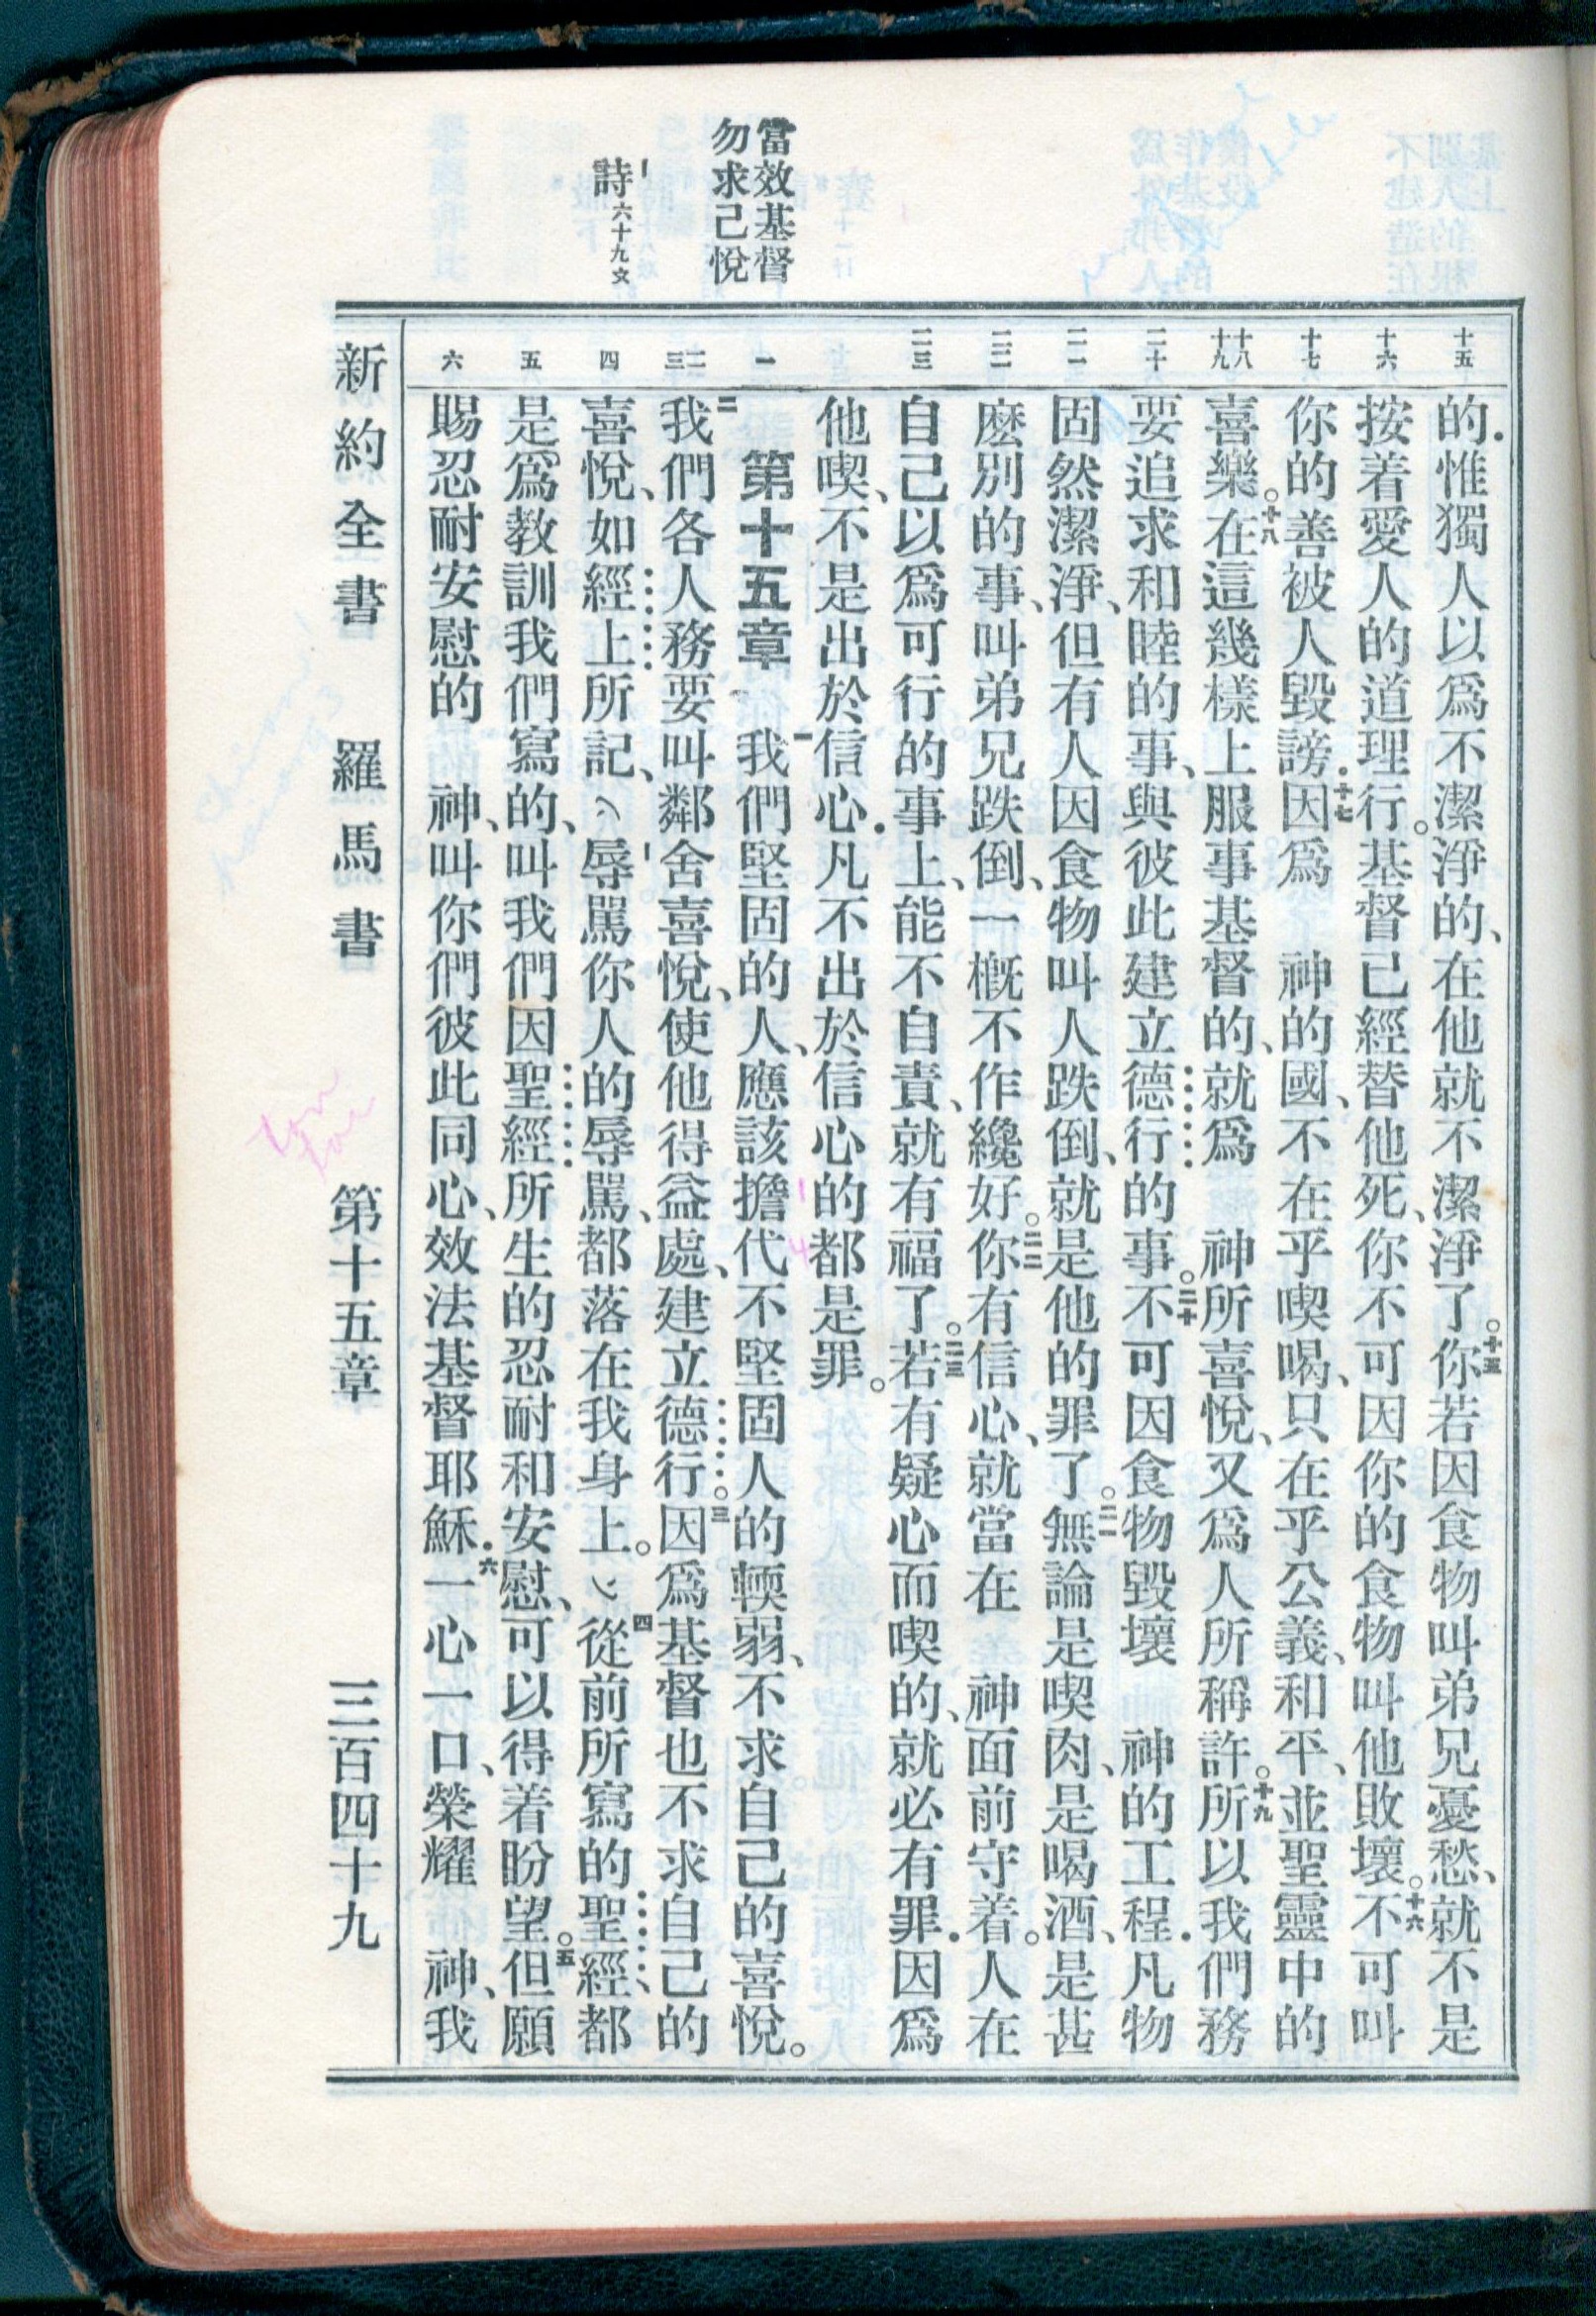 當效基督
勿求己悅
詩六十九文
十五
十六
十七
十八
十九
二十
二一
二二
二三
一
二
三
四
五
六
的．惟獨人以爲不潔淨的、在他就不潔淨了。十五你若因食物叫弟兄憂愁、就不是
按着愛人的道理行。基督已經替他死、你不可因你的食物叫他敗壞。十六不可叫
你的善被人毀謗．十七因爲　神的國、不在乎喫喝、只在乎公義、和平、並聖靈中的
喜樂。十八在這幾樣上服事基督的、就爲　神所喜悅、又爲人所稱許。十九所以我們務
要追求和睦的事、與彼此建立德行的事。二十不可因食物毀壞　神的工程．凡物
固然潔淨、但有人因食物叫人跌倒、就是他的罪了。二一無論是喫肉、是喝酒、是甚
麽別的事、叫弟兄跌倒、一槪不作纔好。二二你有信心、就當在　神面前守着。人在
自己以爲可行的事上、能不自責、就有福了。二三若有疑心而喫的、就必有罪．因爲
他喫、不是出於信心．凡不出於信心的都是罪。
第十五章　一我們堅固的人、應該擔代不堅固人的輭弱、不求自己的喜悅。
二我們各人務要叫鄰舍喜悅、使他得益處、建立德行。三因爲基督也不求自己的
喜悅、如經上所記、（辱駡你人的辱駡、都落在我身上。）四從前所寫的聖經、都
是爲教訓我們寫的、叫我們因聖經所生的忍耐和安慰、可以得着盼望。五但願
賜忍耐安慰的　神、叫你們彼此同心、效法基督耶穌．六一心一口、榮耀　神、我
新約全書　羅馬書　第十五章　三百四十九